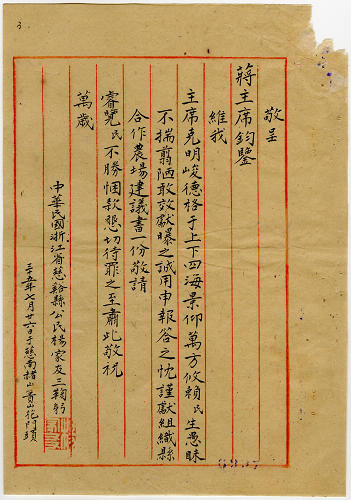 敬呈
蔣主席鈞鑒
維我
主席克明峻德格于上下四海景仰萬方攸賴民生愚昧
不揣翦陋敢效獻曝之誠用申報答之忱謹獻組織縣
合作農場建議書一份敬請
睿覽民不勝悃款懇切待罪之至肅此敬祝
萬歲
中華民國浙江省慈谿縣公民楊家友三鞠躬
三十五年七月廿六日于慈南